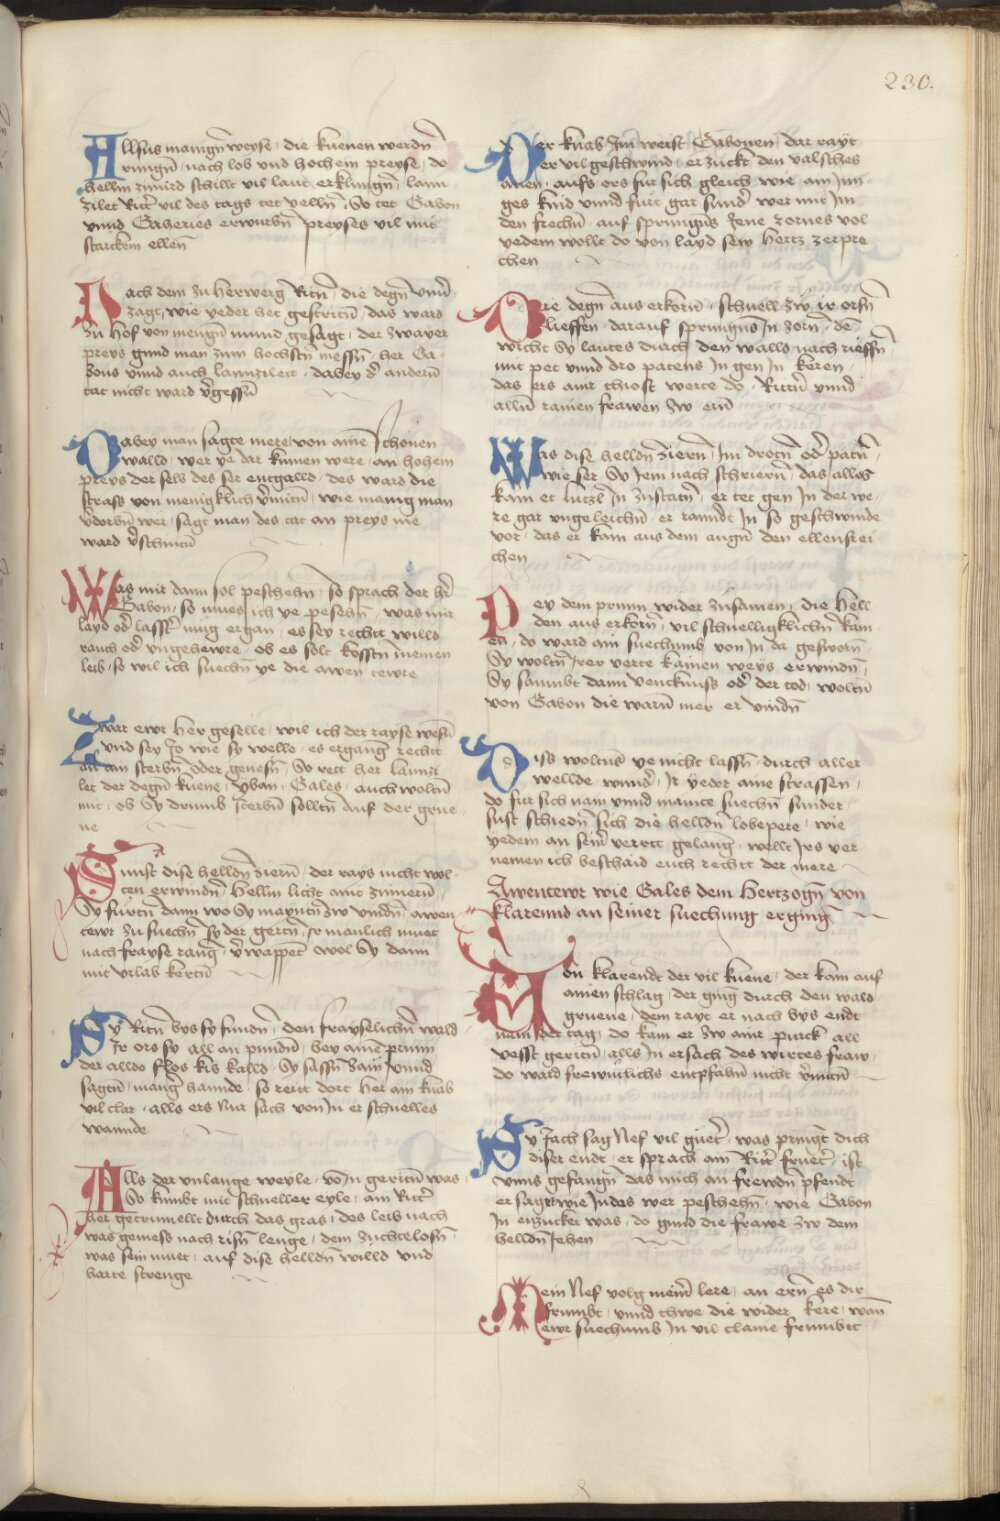 230.
Allsus manign weyse, die kuenen werdn
rungn, nach lob vnd hochem preyse, do
hellm zimird schillt vil laut erklungn, lann
zilet Rittr vil des tags tet velln, So tet Gabon
vnnd Gaheries erwurbn preyses vil mit
starckem ellen
Nach dem zu Herwerg Ritn, die degn vnuer
zagt, wie yeder het gestritn, das ward
zu hof von mengn mund gesagt, der zwayer
preys gund man zum hochstn messn, her Ga
bons vnnd auch lannzilett, dabey der andern
tat nicht ward vergessn
Dabey man sagte mere, von aine schonen
walld, wer ye dar kumen were, an hohem
preys der selb des ser entgalld, des ward die
strass von menigklich vermitn, wie manig man
verdorbn wer, sagt man des tat an preys nie
ward verschnitn
Was mir dann sol peschehn, so sprach der her
Gabon, so mues ich ye pesehn, was mir
layd oder lasster mug ergan, es sey recht willd
rauch oder vngehewre, ob es solt kosstn meinen
leib, so wil ich suechn ye die awentewre
Zwar ewr her geselle, wil ich der rayse wesn
vnd sey Jo wie sy welle, es ergang recht
an ain sterbn oder genesn, So rett her lannzi
let der degn kuene, yban, Gales, auch woltn
mit, ob Sy drumb sterbn solltn auf der grue
ne
Sunst dise helldn ziern, der rays nicht wol
ten erwindn, hellm licht mit zimiern,
Sy furtn dann wo Sy mayntn zw vindn awen
tewr zu suechn sy der gertn, Ir manlich muet
nach frayse rang, verwappet wol Sy dann
mit vrlab kertn
Sy Ritn bys sy fundn, den frayslichn wald
Ir ors sy all an pundn, bey aine prunn
der alldo flos kis kalld, Sy sassn zam vnnd
sagtn, manig hannde, so reitt dort her ain knab
vil clar, alls ers nur sach von In er schnelles
wannde
Alls der vnlange weyle, von In geritn was
So kumbt mit schneller eyle, ain Ritter
her getrumellt durch das gras, des leib nach
was gemess nach risn lenge, dem zuchtelosn
was sein muet, auf dise helldn willd vnd
harte strenge
Der knab Im weist Gabonen, dar rayt
er vil geschwind, er zuckt den valsches
anen, aufs ors fur sich gleich wie ain Jun
ges kind vnnd furt gar sunder wer mit Im
den frechn, auf sprungns Jene zornes vol
yedem wollt do von layd sein hertz zerpre
chen
Die degn aus erkorn, schnell zw Ir orsn
lieffen, darauf sprungns In zorn, de
wicht Sy lautes durch den walld nach rieffn
mit pet vnnd dro patens In gen In keren,
das ers ainr thiost werte do, Rittern vnnd
alln rainen frawen zw ern
Was dise helldn ziern, Im drotn oder patn,
wie ser Sy Jem nach schriern, das alles
kam et lutzl In zustatn, er tet gen In der we
re gar vngeleichn, er ranndt In so geschwinde
vor, das er kam aus dem augn den ellensrei
chen
Pey dem prunn wider zusamen, die hell
den aus erkorn, vil schnelligklichn kam
en, do ward ain suechumb von In da gesworn,
Sy woltn Irer verte kainen weys erwindn,
Sy sambt dann venncknuss oder der tod, woltn
von Gabon die warn mer er vindn
Diss woltns ye nicht lassn, durch aller
wellde wund, Ir yeder aine strassen,
do fur sich nam vnnd mainte suechn sunder,
sust schiedn sich die helldn lobepere, wie
yedem an seinr verrtt gelang, wellt Irs ver
nemen ich beschaid euch rechtt der mere
Awentewr wie Gales dem Hertzogn von
klarennd an seiner suechung erging
Von klarendt der vil kuene, der kam auf
ainen schlag, der ging durch den wald
gruene, dem rayt er nach bys endt
nam der tag, do kam er zw ainr purck all
vesst geritn, alls In ersach des wirtes fraw,
do ward frewntlichs entpfahn nicht vermitn
Sy Jach sag Nef vil gueter, was pringt dich
diser endt, er sprach ain Ritter frueter, ist
vnns gefangn das mich an frewdn pfendt
er sagt wie Indes wer peschehn, wie Gabon
In enzucket was, do gund die frawe zw dem
helldn Jehen
Mein Nef volg meinr lere, an ern es dir
frumbt, vnnd thue die wider kere, wan
ewr suechumb In vil claine frumbtt